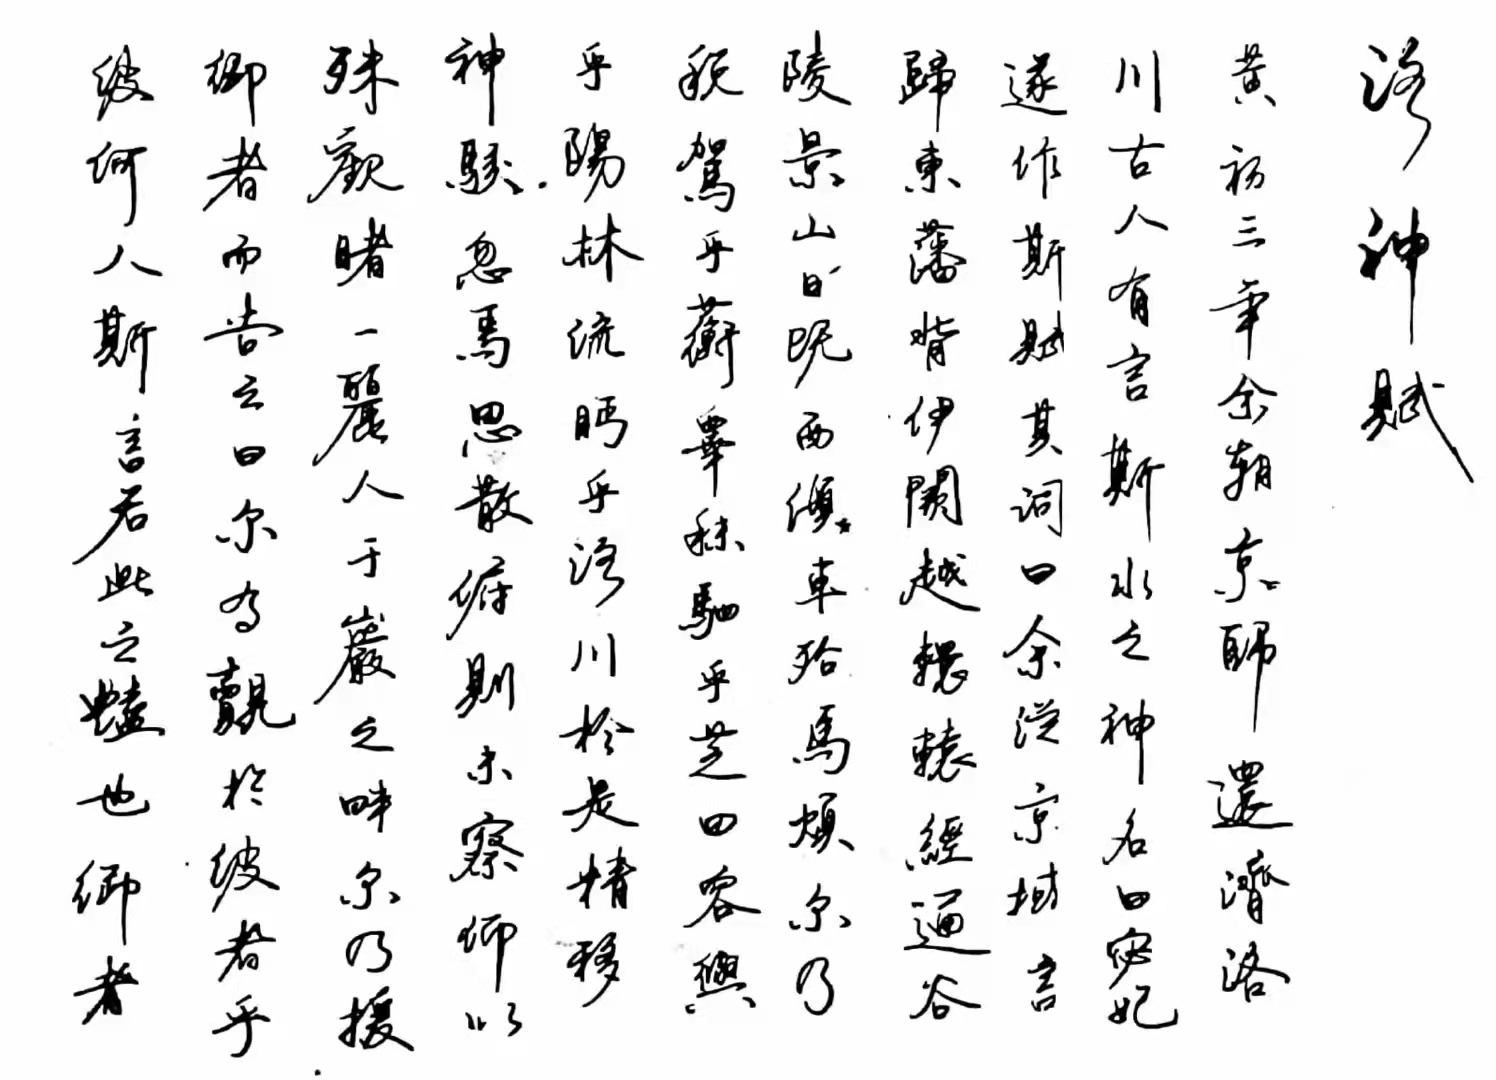 洛神賦
黃初三年余朝京師還濟洛
川古人有言斯水之神名曰宓妃
遂作斯賦其詞曰余從京域言
歸東藩背伊闕越轘轅經通谷
陵景山日既西傾車殆馬煩尔乃
稅駕乎蘅皋秣駟乎芝田容與
乎陽林流眄乎洛川於是精移
神駭忽焉思散俯則未察仰以
殊觀睹一麗人于巖之畔尔乃援
御者而告之曰尔有覿於彼者乎
彼何人斯言若此之豔也御者